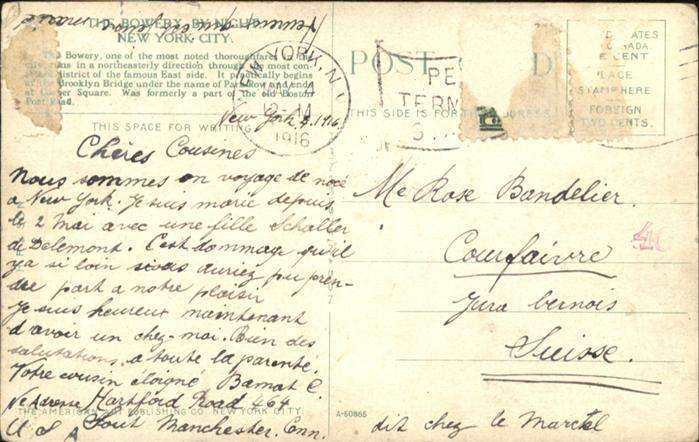 THE BOWERY, BY NIGHT
NEW YORK CITY.
The Bowery, one of the most noted thoroughfares of the
runs in a northeasterly direction through the most con-
district of the famous East side. It practically begins
Brooklyn Bridge under the name of Park Row and ends
at Cooper Square. Was formerly a part of the old Boston
Post Road.
THIS SPACE FOR WRITING
NEW YORK, N.Y.
1916
New York 9. 1916
Chères Cousines
Nous sommes en voyage de noce
a New York. Je suis marié depuis
le 2 Mai avec une fille Schaller
de Delemont. C'est dommage qu'il
y a si loin vous auriez pu pren-
dre part a notre plaisir
Je suis heureux maintenant
d'avoir un chez-moi. Bien des
salutations a toute la parenté.
Votre cousin éloigné Bamat C.
Hartford Road 464
THE AMERICAN ART PUBLISHING CO. NEW YORK CITY
U S A Sout Manchester. Conn.
POST
THIS SIDE FOR THE ADDRESS
PLACE
STAMP HERE
FOREIGN
TWO CENTS.
Me Rose Bandelier.
Courfaivre
Jura bernois
Suisse.
A-60866
dit chez le Martel